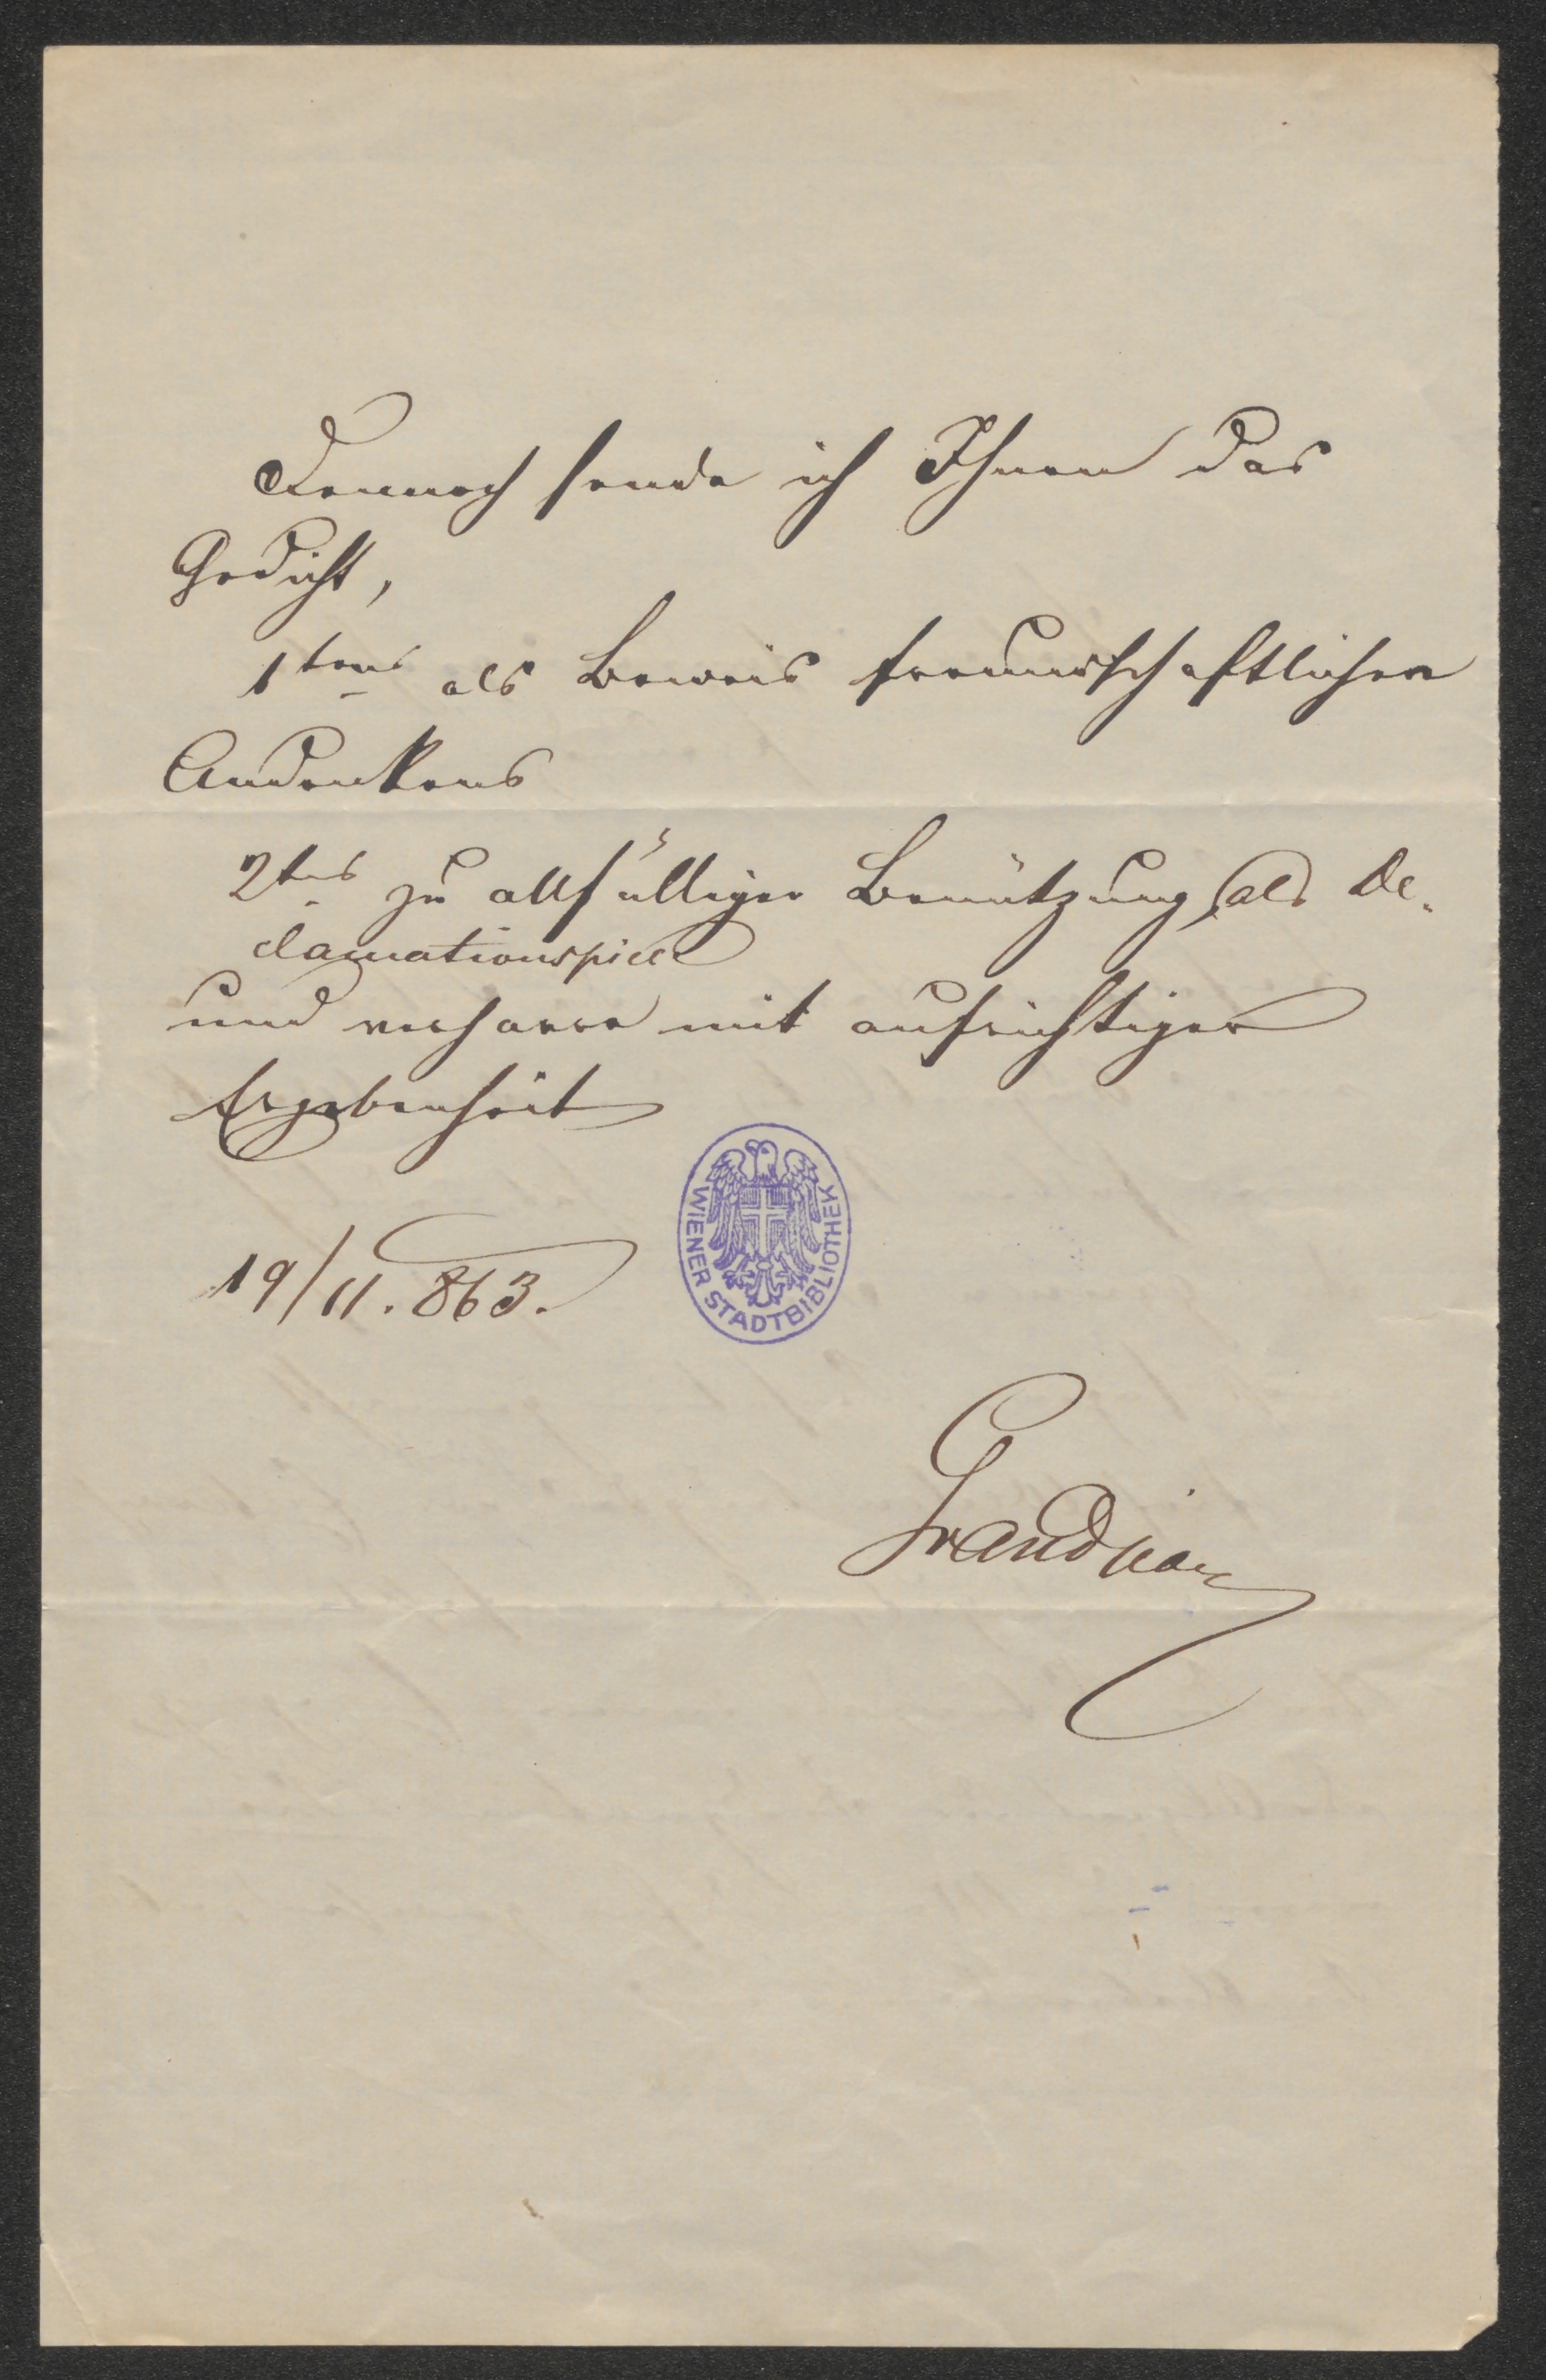 Dennoch sende ich Ihnen das
Gedicht,
1tens als Beweis freundschaftlichen
Andenkens
2tens zu allfälliger Benützung als De-
clamationspiece
und verharre mit aufrichtiger
Ergebenheit
19/11. 863.
WIENER STADTBIBLIOTHEK
Grandjean